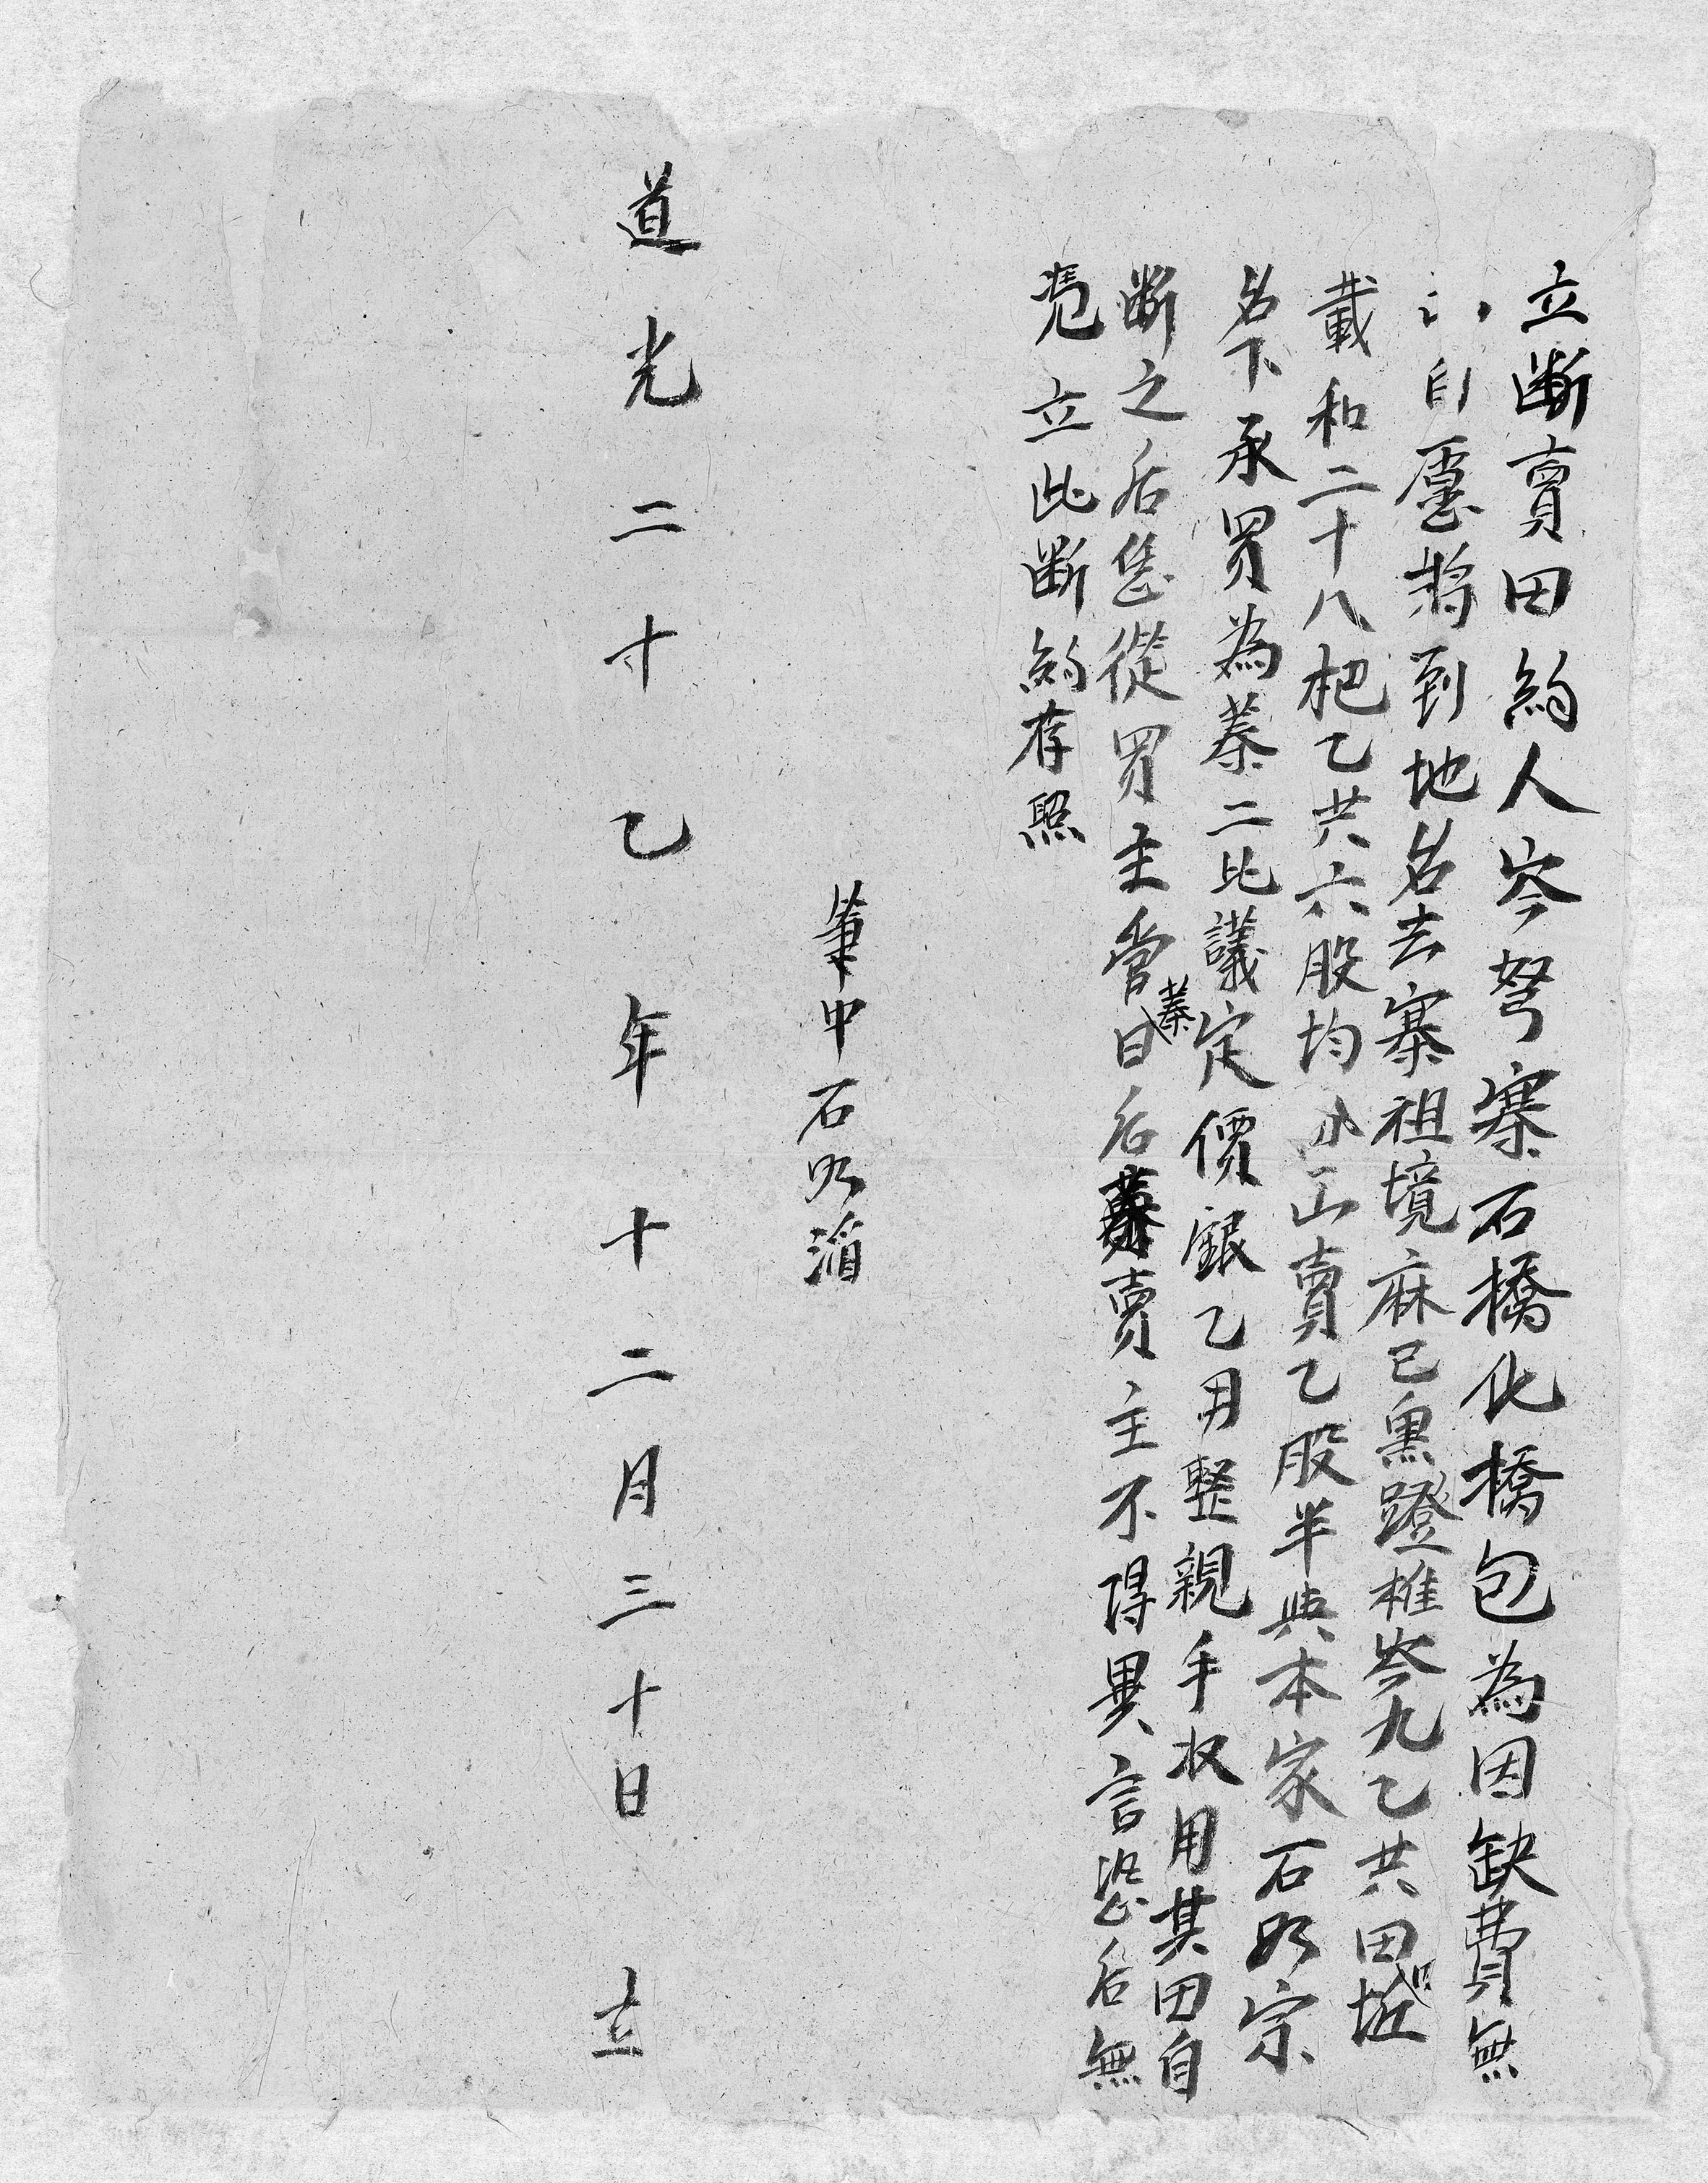 立断賣田約人岑弩寨石橋化橋包為因缺費無
自愿將到地名去寨祖境麻已魚蹬樁岑九乙共田坵
載和二十八把乙共六股均出賣乙股半與本家石明宗
名下承買為業二比議定價銀乙用整親手收用其田自
断之后恁從買主管業日后賣主不得異言恐后無
凭立此断約存照
筆中石明
道光二十乙年十二月三十日立